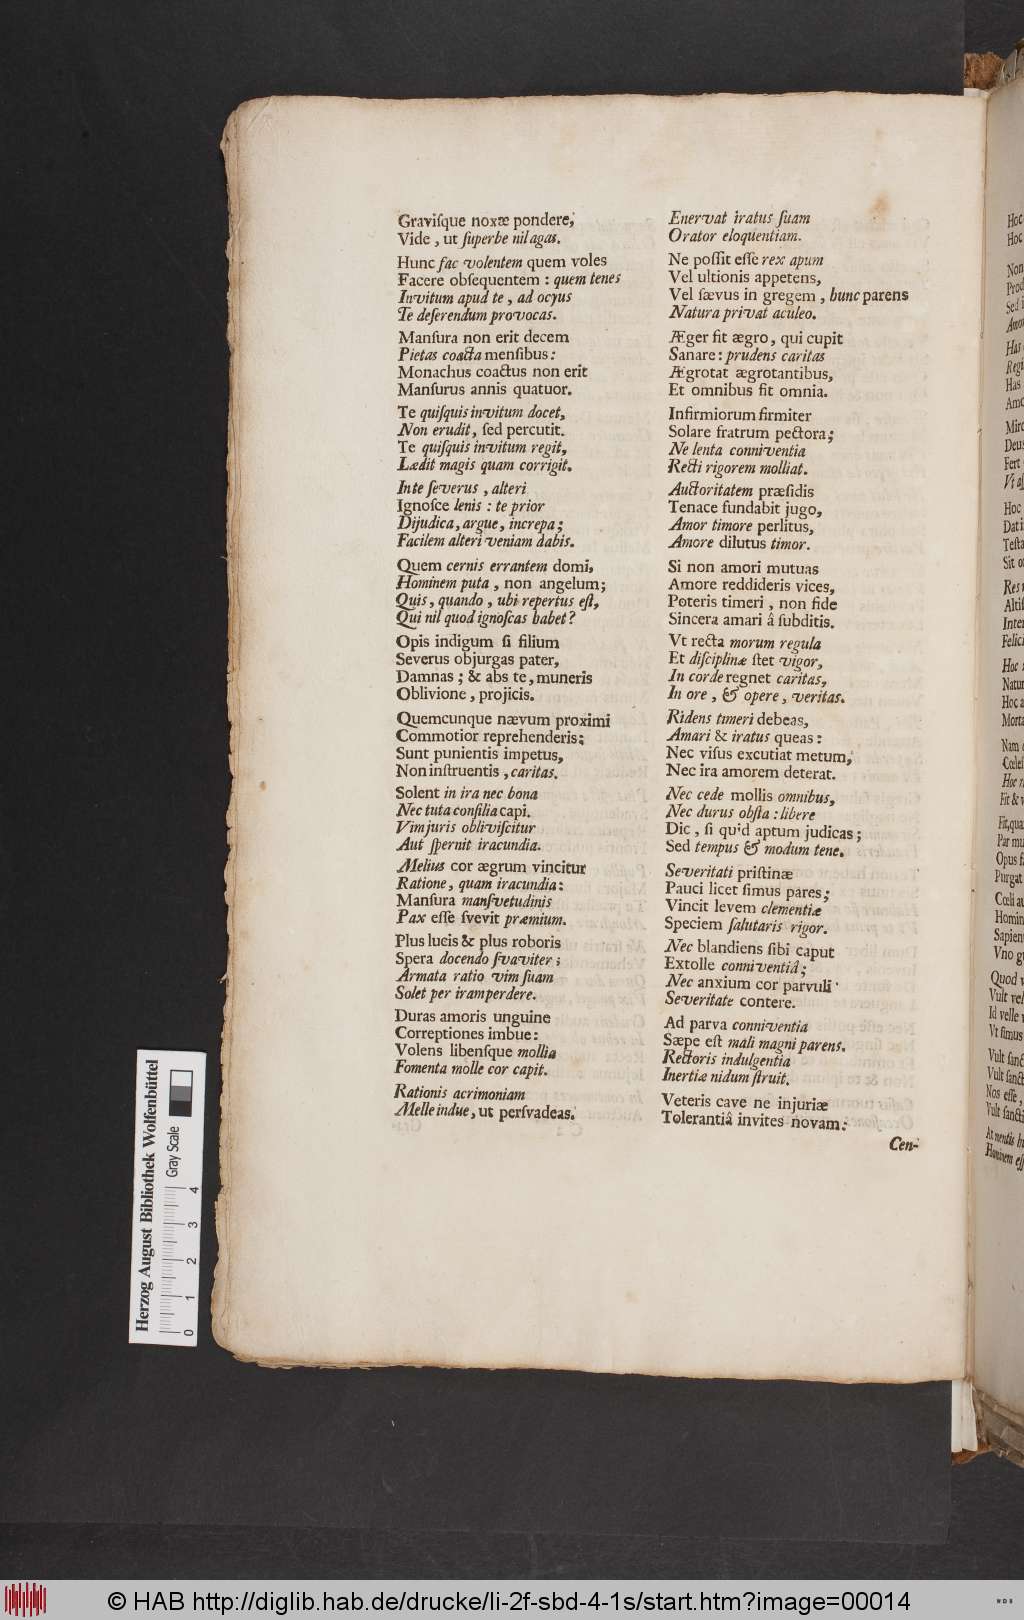 Graviſque noxæ pondere,
Vide, ut ſuperbe nil agas.
Hunc fac volentem quem voles
Facere obſequentem: quem tenes
Invitum apud te, ad ocyus
Te deferendum provocas.
Manſura non erit decem
Pietas coacta menſibus:
Monachus coactus non erit
Manſurus annis quatuor.
Te quiſquis invitum docet,
Non erudit, ſed percutit.
Te quiſquis invitum regit,
Lædit magis quam corrigit.
In te ſeverus, alteri
Ignoſce lenis: te prior
Dijudica, argue, increpa;
Facilem alteri veniam dabis.
Quem cernis errantem domi,
Hominem puta, non angelum;
Quis, quando, ubi repertus eſt,
Qui nil quod ignoſcas habet?
Opis indigum ſi filium
Severus objurgas pater,
Damnas; & abs te, muneris
Oblivione, projicis.
Quemcunque nævum proximi
Commotior reprehenderis;
Sunt punientis impetus,
Non inſtruentis, caritas.
Solent in ira nec bona
Nec tuta conſilia capi.
Vim juris obliviſcitur
Aut ſpernit iracundia.
Melius cor ægrum vincitur
Ratione, quam iracundia:
Manſura manſvetudinis
Pax eſſe ſvevit præmium.
Plus lucis & plus roboris
Spera docendo ſvaviter;
Armata ratio vim ſuam
Solet per iram perdere.
Duras amoris unguine
Correptiones imbue:
Volens libenſque mollia
Fomenta molle cor capit.
Rationis acrimoniam
Melle indue, ut perſvadeas.
Enervat iratus ſuam
Orator eloquentiam.
Ne poſſit eſſe rex apum
Vel ultionis appetens,
Vel ſævus in gregem, hunc parens
Natura privat aculeo.
Æger fit ægro, qui cupit
Sanare: prudens caritas
Ægrotat ægrotantibus,
Et omnibus fit omnia.
Infirmiorum firmiter
Solare fratrum pectora;
Ne lenta conniventia
Recti rigorem molliat.
Auctoritatem præſidis
Tenace fundabit jugo,
Amor timore perlitus,
Amore dilutus timor.
Si non amori mutuas
Amore reddideris vices,
Poteris timeri, non fide
Sincera amari â ſubditis.
Vt recta morum regula
Et diſciplinæ ſtet vigor,
In corde regnet caritas,
In ore, & opere, veritas.
Ridens timeri debeas,
Amari & iratus queas:
Nec viſus excutiat metum,
Nec ira amorem deterat.
Nec cede mollis omnibus,
Nec durus obſta: libere
Dic, ſi quid aptum judicas;
Sed tempus & modum tene.
Severitati priſtinæ
Pauci licet ſimus pares;
Vincit levem clementiæ
Speciem ſalutaris rigor.
Nec blandiens ſibi caput
Extolle conniventiâ;
Nec anxium cor parvuli
Severitate contere.
Ad parva conniventia
Sæpe eſt mali magni parens.
Rectoris indulgentia
Inertiæ nidum ſtruit.
Veteris cave ne injuriæ
Tolerantiâ invites novam:
Cen-
Hoc
Hoc
Non
Has
Regi
Has
Deus
Fert
Hoc
Sit
Altiſ
Inter
Felic
Hoc
Natur
Hoc a
Morta
Nam
Hoc
Fit & v
Par mu
Opus f
Purgat
Cœli au
Homin
Sapien
Vno g
Quod v
Vult vel
Id velle
Vt ſimus
Vult ſanct
Vult ſanct
Nos eſſe,
Vult ſancti
Hominem eſſ
Herzog August Bibliothek Wolfenbüttel
Gray Scale
0 1 2 3 4
© HAB http://diglib.hab.de/drucke/li-2f-sbd-4-1s/start.htm?image=00014